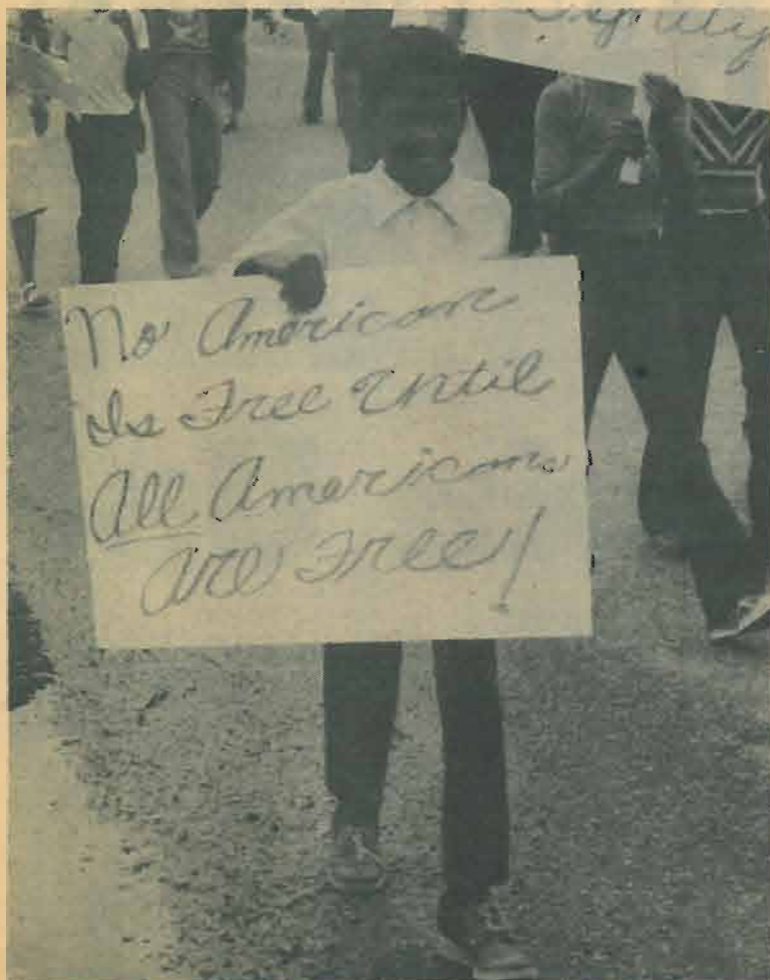 Dignity
No American
Is Free Until
All Americans
Are Free!